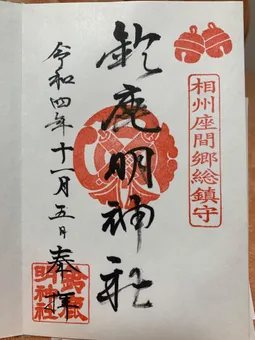 相州座間郷総鎮守
鈴鹿明神社
奉拝
令和四年十一月五日
鈴鹿
明神社